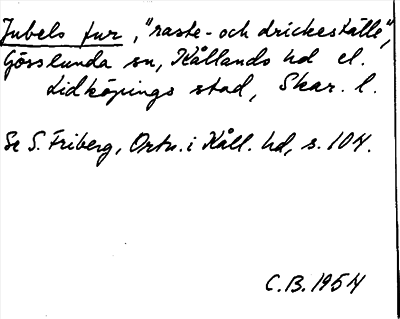 Jubels fur, "raste- och drickeställe",
Gösslunda sn, Kållands hd el.
Lidköpings stad, Skar. l.
Se S. Friberg, Ortn. i Kåll. hd, s. 104.
C.B. 1954